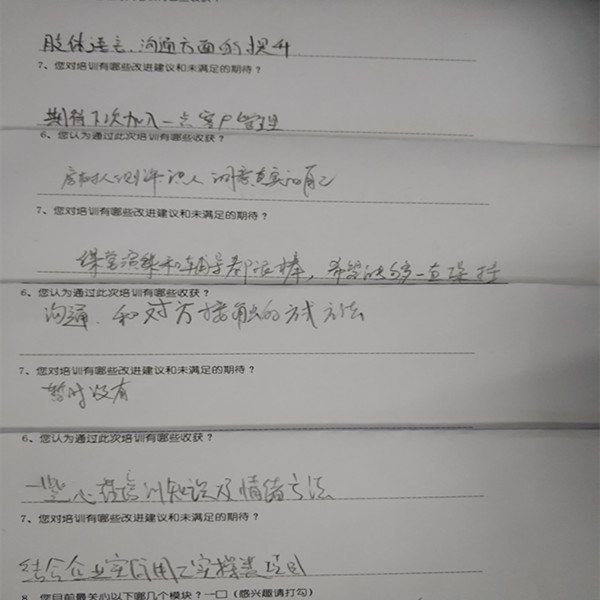 肢体语言、沟通方面的提升
7、您对培训有哪些改进建议和未满足的期待?
期待下次加入一点客户管理
6、您认为通过此次培训有哪些收获?
识人 洞察真实的自己
7、您对培训有哪些改进建议和未满足的期待?
课堂演练和辅导都很棒，希望能够一直保持
6、您认为通过此次培训有哪些收获?
沟通、和对方接触的方式方法
7、您对培训有哪些改进建议和未满足的期待?
暂时没有
6、您认为通过此次培训有哪些收获?
一些心理培训知识及情绪方法
7、您对培训有哪些改进建议和未满足的期待?
结合企业实际用工实操类项目
8、您目前最关心以下哪几个模块?一口(感兴趣请打勾)